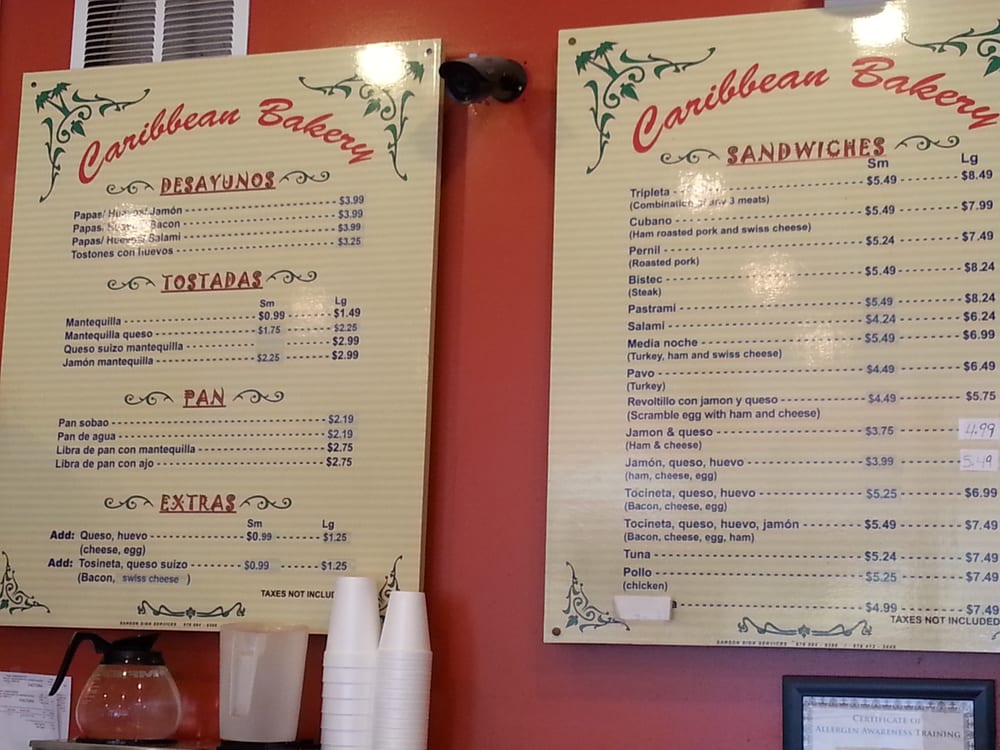 Caribbean Bakery
DESAYUNOS
Papas/ Huevos/ Jamón $3.99
Papas/ Huevos/ Bacon $3.99
Papas/ Huevos/ Salami $3.99
Tostones con huevos $3.25
TOSTADAS
Sm Lg
Mantequilla $0.99 $1.49
Mantequilla queso $1.75 $2.25
Queso suizo mantequilla $2.99
Jamón mantequilla $2.25 $2.99
PAN
Pan sobao $2.19
Pan de agua $2.19
Libra de pan con mantequilla $2.75
Libra de pan con ajo $2.75
EXTRAS
Sm Lg
Add: Queso, huevo $0.99 $1.25
(cheese, egg)
Add: Tosineta, queso suizo $0.99 $1.25
(Bacon, swiss cheese )
TAXES NOT
Caribbean Bakery
SANDWICHES
Sm Lg
Tripleta $5.49 $8.49
(Combination of any 3 meats)
Cubano $5.49 $7.99
(Ham roasted pork and swiss cheese)
Pernil $5.24 $7.49
(Roasted pork)
Bistec $5.49 $8.24
(Steak)
Pastrami $5.49 $8.24
Salami $4.24 $6.24
Media noche $5.49 $6.99
(Turkey, ham and swiss cheese)
Pavo $4.49 $6.49
(Turkey)
Revoltillo con jamon y queso $4.49 $5.75
(Scramble egg with ham and cheese)
Jamon & queso $3.75 4.99
(Ham & cheese)
Jamón, queso, huevo $3.99 5.49
(ham, cheese, egg)
Tocineta, queso, huevo $5.25 $6.99
(Bacon, cheese, egg)
Tocineta, queso, huevo, jamón $5.49 $7.49
(Bacon, cheese, egg, ham)
Tuna $5.24 $7.49
Pollo $5.25 $7.49
(chicken)
$4.99 $7.49
TAXES NOT INCLUDED
CERTIFICATE OF
ALLERGEN AWARENESS TRAINING